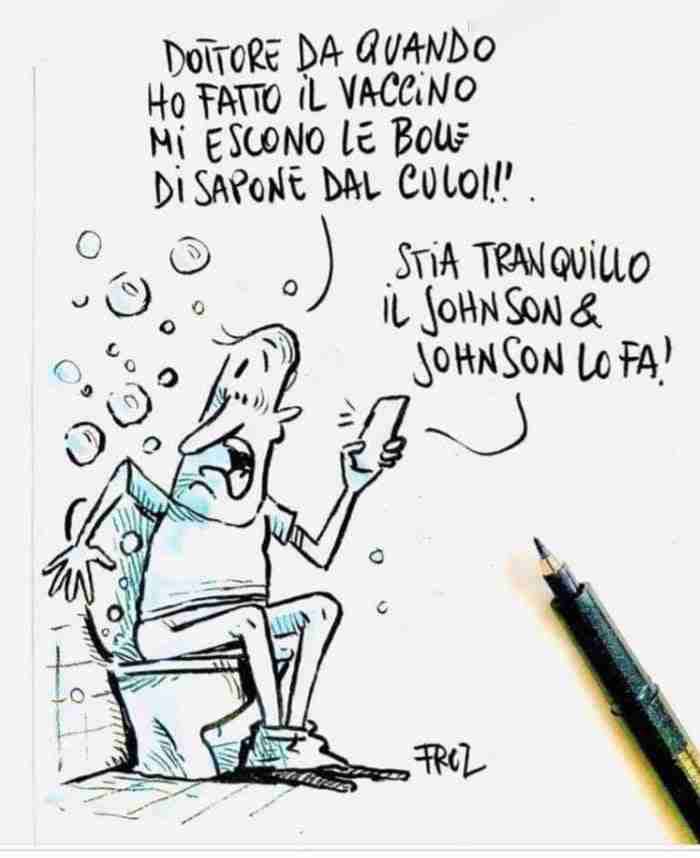 DOTTORE DA QUANDO
HO FATTO IL VACCINO
MI ESCONO LE BOLLE
DI SAPONE DAL CULO!!!.
STIA TRANQUILLO
IL JOHNSON &
JOHNSON LO FA!
FROZ